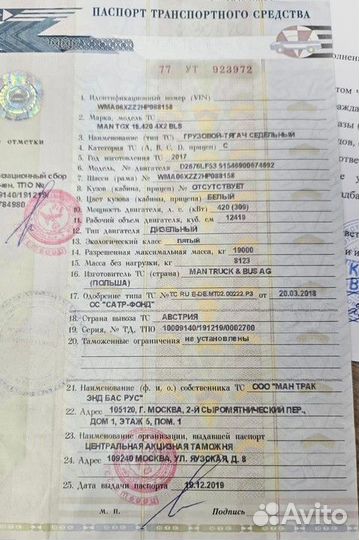 ПАСПОРТ ТРАНСПОРТНОГО СРЕДСТВА
77 УТ 923972
1. Идентификационный номер (VIN) WMA06XZZ7HP088158
2. Марка, модель ТС MAN TGX 18.420 4X2 BLS
3. Наименование (тип ТС) ГРУЗОВОЙ-ТЯГАЧ СЕДЕЛЬНЫЙ
4. Категория ТС (A, B, C, D, прицеп) C
5. Год изготовления ТС 2017
6. Модель, № двигателя D2676LF53 51546900674692
7. Шасси (рама) № WMA06XZZ7HP088158
8. Кузов (кабина, прицеп) № ОТСУТСТВУЕТ
9. Цвет кузова (кабины, прицепа) БЕЛЫЙ
10. Мощность двигателя, л. с. (кВт) 420 (309)
11. Рабочий объем двигателя, куб. см 12419
12. Тип двигателя ДИЗЕЛЬНЫЙ
13. Экологический класс пятый
14. Разрешенная максимальная масса, кг 19000
15. Масса без нагрузки, кг 8123
16. Изготовитель ТС (страна) MAN TRUCK & BUS AG
(ПОЛЬША)
17. Одобрение типа ТС № ТС RU E-DE.МТ02.00222.Р3 от 20.03.2018
ОС "САТР-ФОНД"
18. Страна вывоза ТС АВСТРИЯ
19. Серия, № ТД, ТПО 10009140/191219/0002700
20. Таможенные ограничения не установлены
21. Наименование (ф. и. о.) собственника ТС ООО "МАН ТРАК
ЭНД БАС РУС"
22. Адрес 105120, Г. МОСКВА, 2-Й СЫРОМЯТНИЧЕСКИЙ ПЕР.,
ДОМ 1, ЭТАЖ 5, ПОМ. 1
23. Наименование организации, выдавшей паспорт
ЦЕНТРАЛЬНАЯ АКЦИЗНАЯ ТАМОЖНЯ
24. Адрес 109240 МОСКВА, УЛ. ЯУЗСКАЯ, Д. 8
25. Дата выдачи паспорта 19.12.2019
М. П. Подпись
е отметки
сбор
ТПО №
784980
Avito